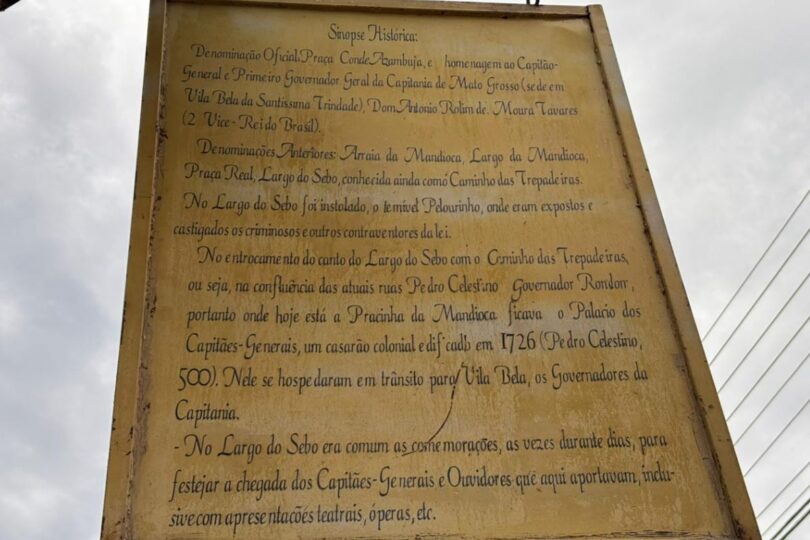 Sinopse Histórica:
Denominação Oficial: Praça Conde Azambuja, e homenagem ao Capitão-
General e Primeiro Governador Geral da Capitania de Mato Grosso (sede em
Vila Bela da Santissima Trindade), Dom Antonio Rolim de Moura Tavares
(2 Vice-Rei do Brasil).
Denominações Anteriores: Arraia da Mandioca, Largo da Mandioca,
Praça Real, Largo do Sebo, conhecida ainda como Caminho das Trepadeiras.
No Largo do Sebo foi instolado, o temivel Pelourinho, onde eram expostos e
castigados os criminosos e outros contraventores da lei.
No entrocamento do canto do Largo do Sebo com o Caminho das Trepadeiras,
ou seja, na confluência das atuais ruas Pedro Celestino Governador Rondon,
portanto onde hoje está a Pracinha da Mandioca ficava o Palacio dos
Capitães-Generais, um casarão colonial edificado em 1726 (Pedro Celestino,
500). Nele se hospedaram em trânsito para Vila Bela, os Governadores da
Capitania.
- No Largo do Sebo era comum as comemorações, as vezes durante dias, para
festejar a chegada dos Capitães-Generais e Ouvidores que aqui aportavam, inclu-
sive com apresentacões teatrais, óperas, etc.